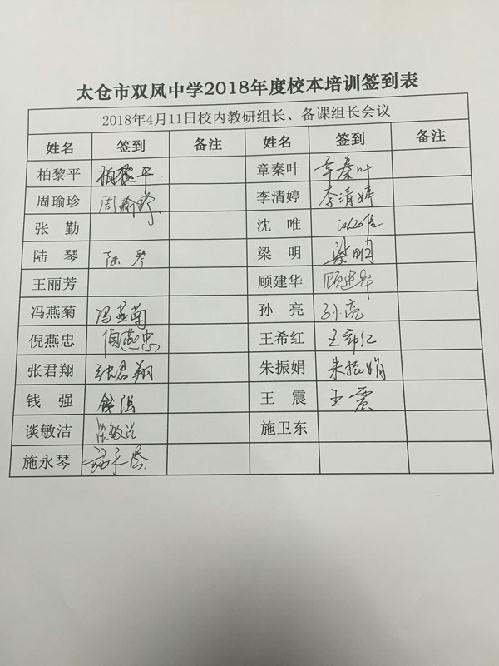 太仓市双凤中学2018年度校本培训签到表
2018年4月11日校内教研组长、备课组长会议
姓名 签到 备注 姓名 签到 备注
柏黎平 柏黎平 章秦叶 章秦叶
周瑜珍 周瑜珍 李清婷 李清婷
张勤 沈唯
陆琴 陆琴 梁明 梁明
王丽芳 顾建华 顾建华
冯燕菊 冯燕菊 孙亮 孙亮
倪燕忠 倪燕忠 王希红 王希红
张君翔 张君翔 朱振娟 朱振娟
钱强 钱强 王震 王震
谈敏洁 谈敏洁 施卫东
施永琴 施永琴